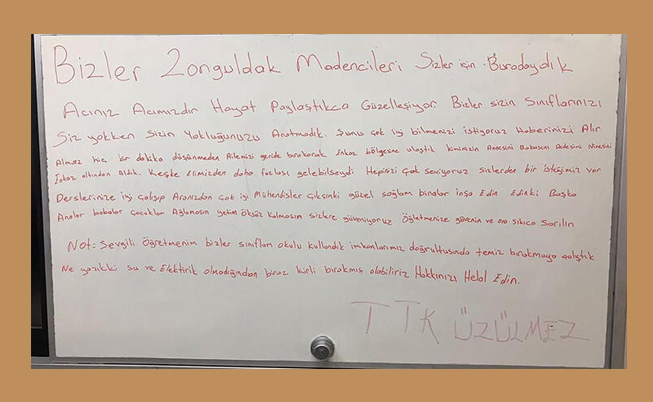 Bizler Zonguldak Madencileri Sizler için Buradaydık
Acınız Acımızdır Hayat Paylaştıkca Güzelleşiyor Bizler sizin Sınıflarınızı
Siz yokken Sizin Yokluğunuzu Aratmadık. Şunu çok iyi bilmenizi istiyoruz Haberinizi Alır
Almaz hiç bir dakika düşünmeden Ailemizi geride bırakarak Enkaz bölgesine ulaştık kiminizin Annesini Babasını Dedesini Ninesini
Enkaz altından Aldık. Keşke Elimizden daha fazlası gelebilseydi Hepinizi Çok Seviyoruz Sizlerden bir isteğimiz var
Derslerinize iyi çalışıp Aranızdan çok iyi Mühendisler çıksınki güzel sağlam binalar inşa Edin Edinki Başka
Analar babalar çocuklar Ağlamasın yetim öksüz kalmasın sizlere güveniyoruz Öğretmenize güvenin ve ona sıkıca Sarılın
Not: Sevgili Öğretmenim bizler sınıfları okulu kullandık imkanlarımız doğrultusunda temiz bırakmaya çalıştık
Ne yazıkki su ve Elektirik olmadığından biraz kirli bırakmış olabiliriz Hakkınızı Helal Edin.
TTK ÜZÜLMEZ